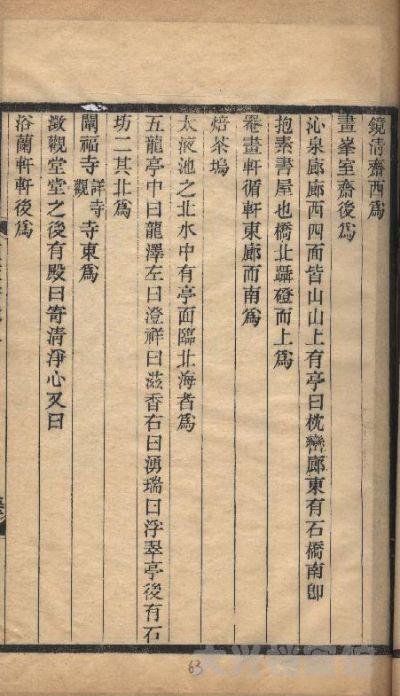 鏡清齋西爲
畫峯室齋後爲
沁泉廊廊西四面皆山山上有亭曰枕巒廊東有石橋南卽
抱素書屋也橋北躡磴而上爲
罨畫軒循軒東廊而南爲
焙茶塢
太液池之北水中有亭面臨北海者爲
五龍亭中曰龍澤左曰澄祥曰滋香右曰湧瑞曰浮翠亭後有石
坊二其北爲
闡福寺詳寺觀寺東爲
澂觀堂堂之後有殿曰寄清淨心又曰
浴蘭軒軒後爲
63